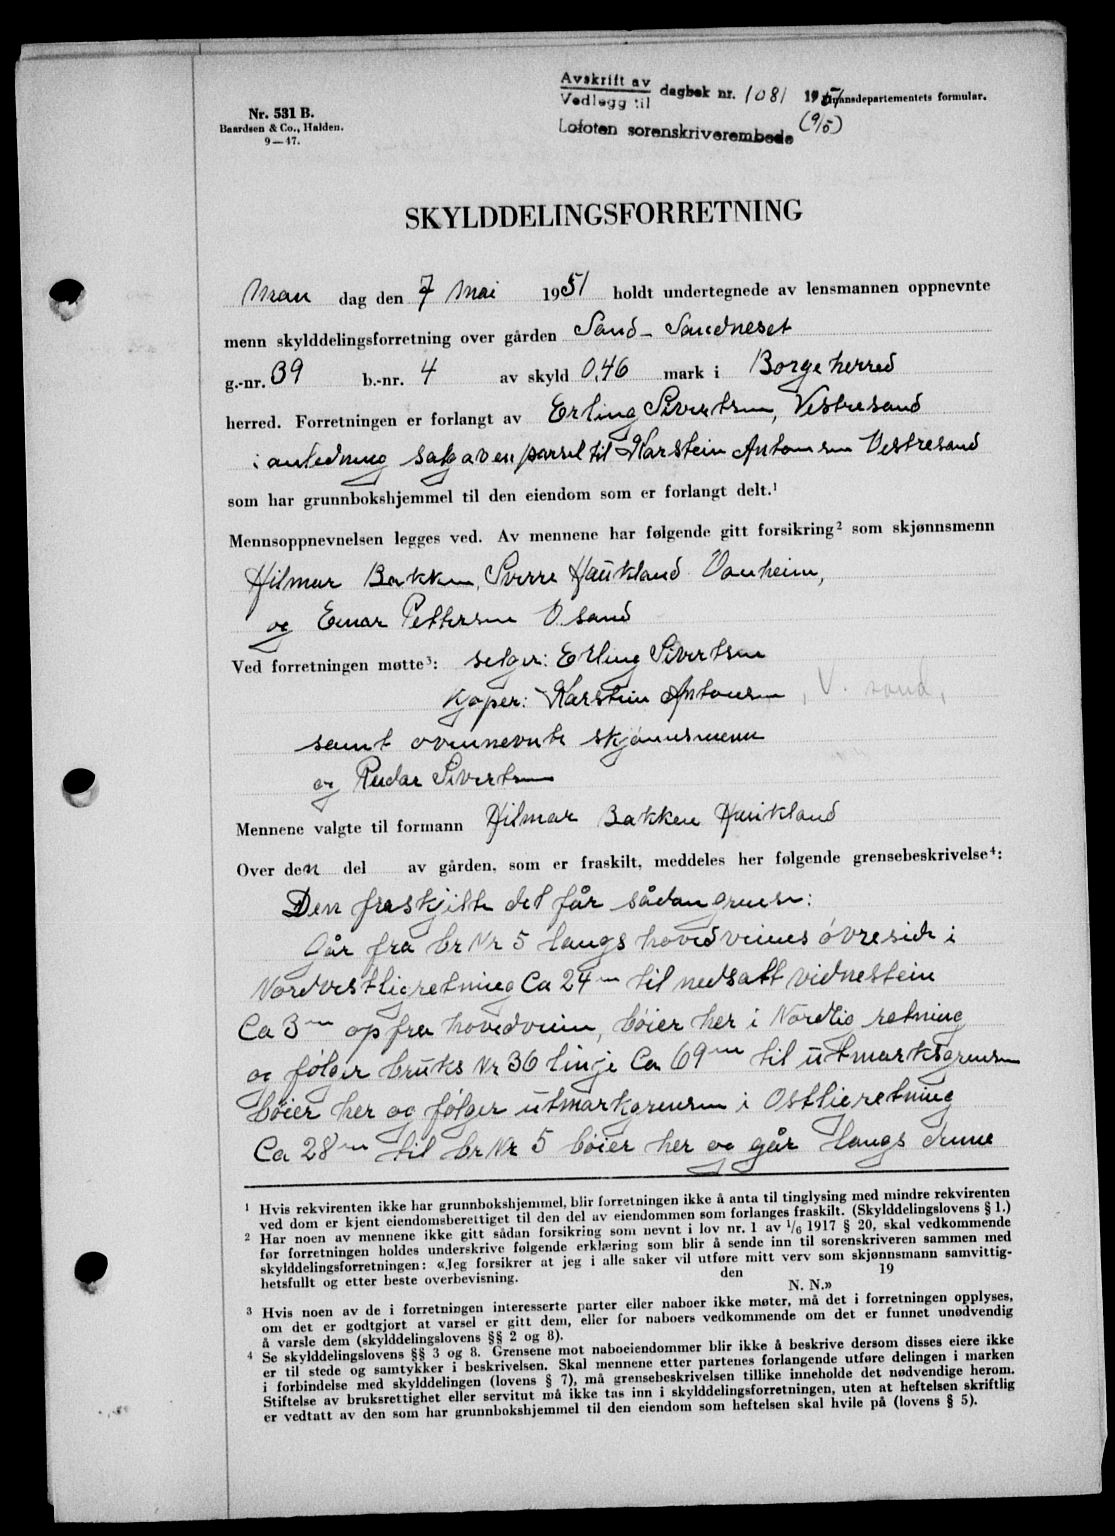 Avskrift av
Vedlegg til dagbok nr. 1081 1951 Finansdepartementets formular.
Lofoten sorenskriverembede (9/5)
Nr. 531 B.
Baardsen & Co., Halden.
9—47.
SKYLDDELINGSFORRETNING
Man dag den 7 Mai 1951 holdt undertegnede av lensmannen oppnevnte
menn skylddelingsforretning over gården Sand - Sandneset
g.-nr. 39 b.-nr. 4 av skyld 0,46 mark i Borge herred
herred. Forretningen er forlangt av Erling Sivertsen, Vestresand
i anledning salg av en parsel til Karstein Antonsen Vestresand
som har grunnbokshjemmel til den eiendom som er forlangt delt.¹
Mennsoppnevnelsen legges ved. Av mennene har følgende gitt forsikring² som skjønnsmenn
Hilmar Bakken, Sverre Haukland Vanheim,
og Einar Pettersen V. sand
Ved forretningen møtte³: selger: Erling Sivertsen
Kjøper: Karstein Antonsen, V. sand,
samt ovennevnte skjønnsmenn
og Reidar Sivertsen
Mennene valgte til formann Hilmar Bakken Haukland
Over den del av gården, som er fraskilt, meddeles her følgende grensebeskrivelse⁴:
Den fraskjilte del får sådan grense:
Går fra br Nr 5 langs hovedveiens øvreside i
Nordvestlig retning Ca 24 m til nedsatt vidnestein
Ca 3 m op fra hovedveien, bøier her i Nordlig retning
og følger bruks Nr 36 linje Ca 69 m til utmarksgrensen
bøier her og følger utmarkgrensen i Ostlig retning
Ca 28 m til br Nr 5 bøier her og går langs denne
¹ Hvis rekvirenten ikke har grunnbokshjemmel, blir forretningen ikke å anta til tinglysing med mindre rekvirenten
ved dom er kjent eiendomsberettiget til den del av eiendommen som forlanges fraskilt. (Skylddelingslovens § 1.)
² Har noen av mennene ikke gitt sådan forsikring som nevnt i lov nr. 1 av 1/6 1917 § 20, skal vedkommende
før forretningen holdes underskrive følgende erklæring som blir å sende inn til sorenskriveren sammen med
skylddelingsforretningen: «Jeg forsikrer at jeg i alle saker vil utføre mitt verv som skjønnsmann samvittig-
hetsfullt og etter beste overbevisning. den 19
N. N.»
³ Hvis noen av de i forretningen interesserte parter eller naboer ikke møter, må det i forretningen opplyses,
om det er godtgjort at varsel er gitt dem, eller for naboers vedkommende om det er funnet unødvendig
å varsle dem (skylddelingslovens §§ 2 og 8).
⁴ Se skylddelingslovens §§ 3 og 8. Grensene mot naboeiendommer blir ikke å beskrive dersom disses eiere ikke
er til stede og samtykker i beskrivelsen. Skal mennene etter partenes forlangende utføre delingen i marken
i forbindelse med skylddelingen (lovens § 7), må grensebeskrivelsen tillike inneholde det nødvendige herom.
Stiftelse av bruksrettighet eller servitut må ikke tas inn i skylddelingsforretningen, uten at heftelsen skriftlig
er vedtatt av den som har grunnbokshjemmel til den eiendom som heftelsen skal hvile på (lovens § 5).